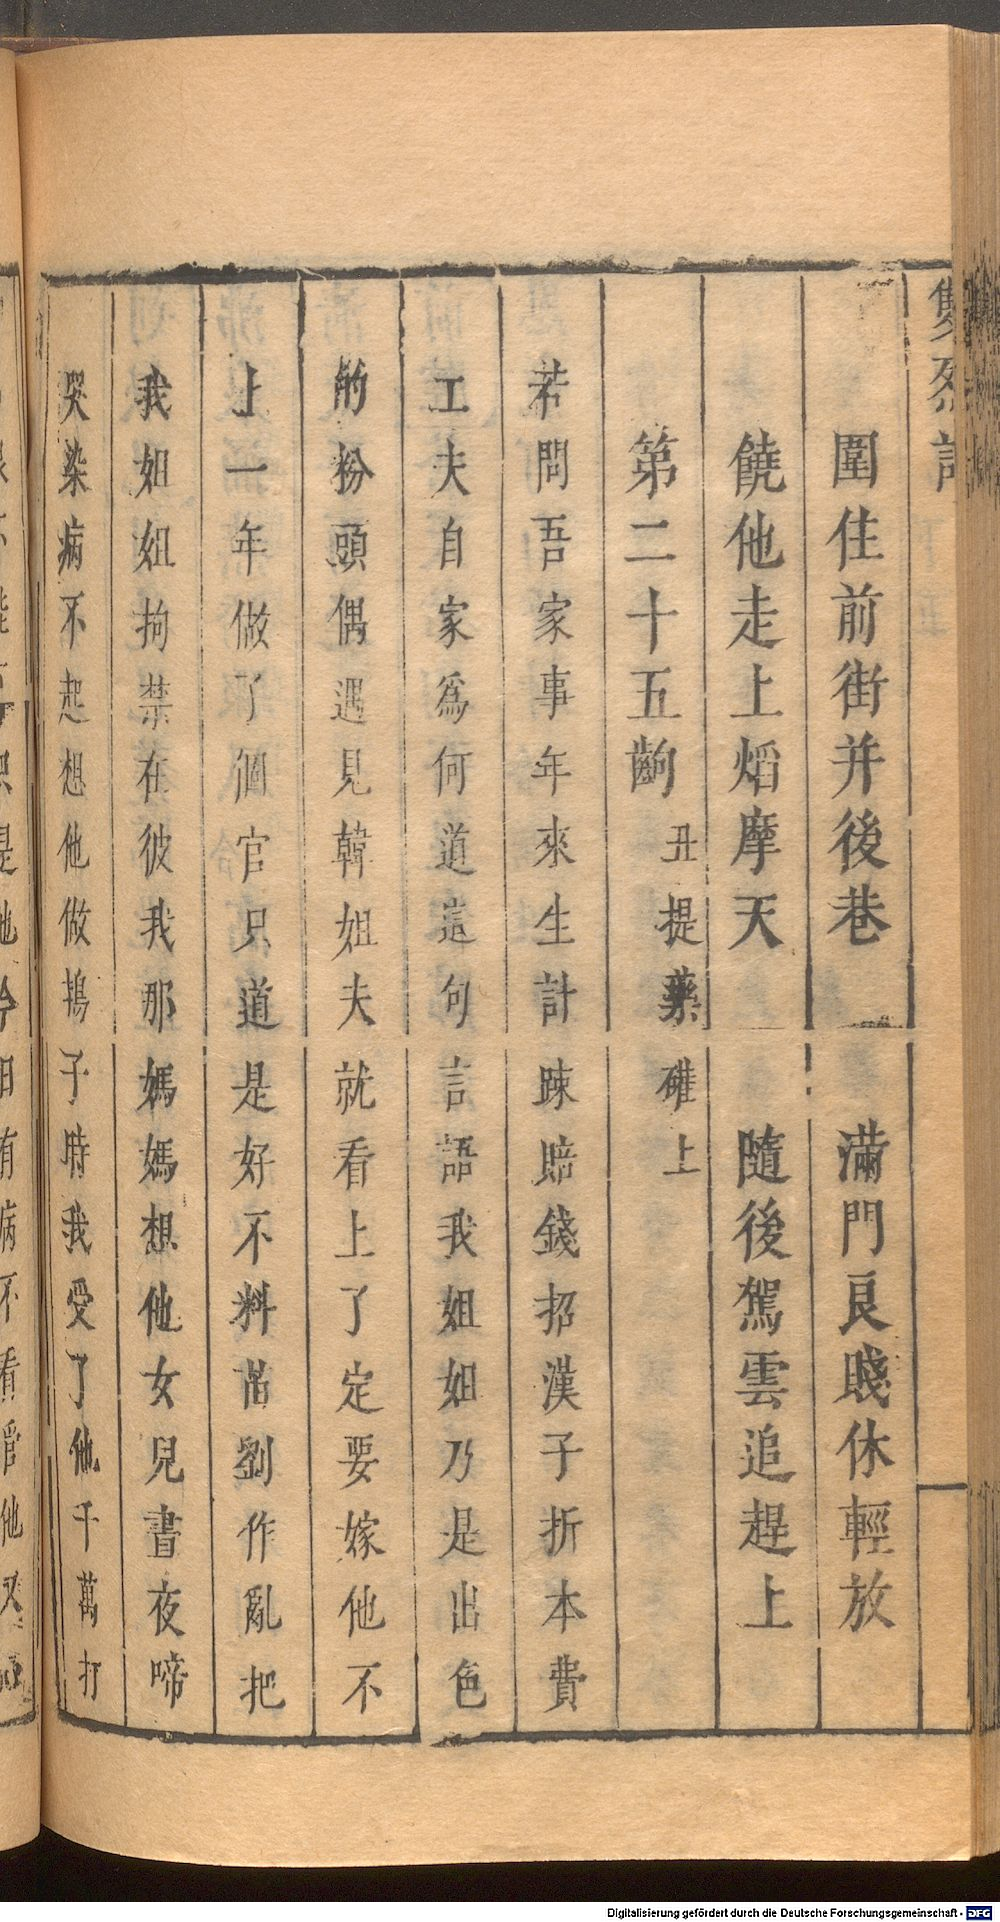 雙烈記
圍住前街并後巷 滿門良賤休輕放
饒他走上焰摩天 隨後駕雲追趕上
第二十五齣 丑提藥碓上
若問吾家事年來生計踈賠錢招漢子折本費
工夫自家為何道這句言語我姐姐乃是出色
的粉頭偶遇見韓姐夫就看上了定要嫁他不
上一年做了個官只道是好不料苗劉作亂把
我姐姐拘禁在彼我那媽媽想他女兒晝夜啼
哭染病不起想他做鴇子時我受了他千萬打
Digitalisierung gefördert durch die Deutsche Forschungsgemeinschaft - DFG